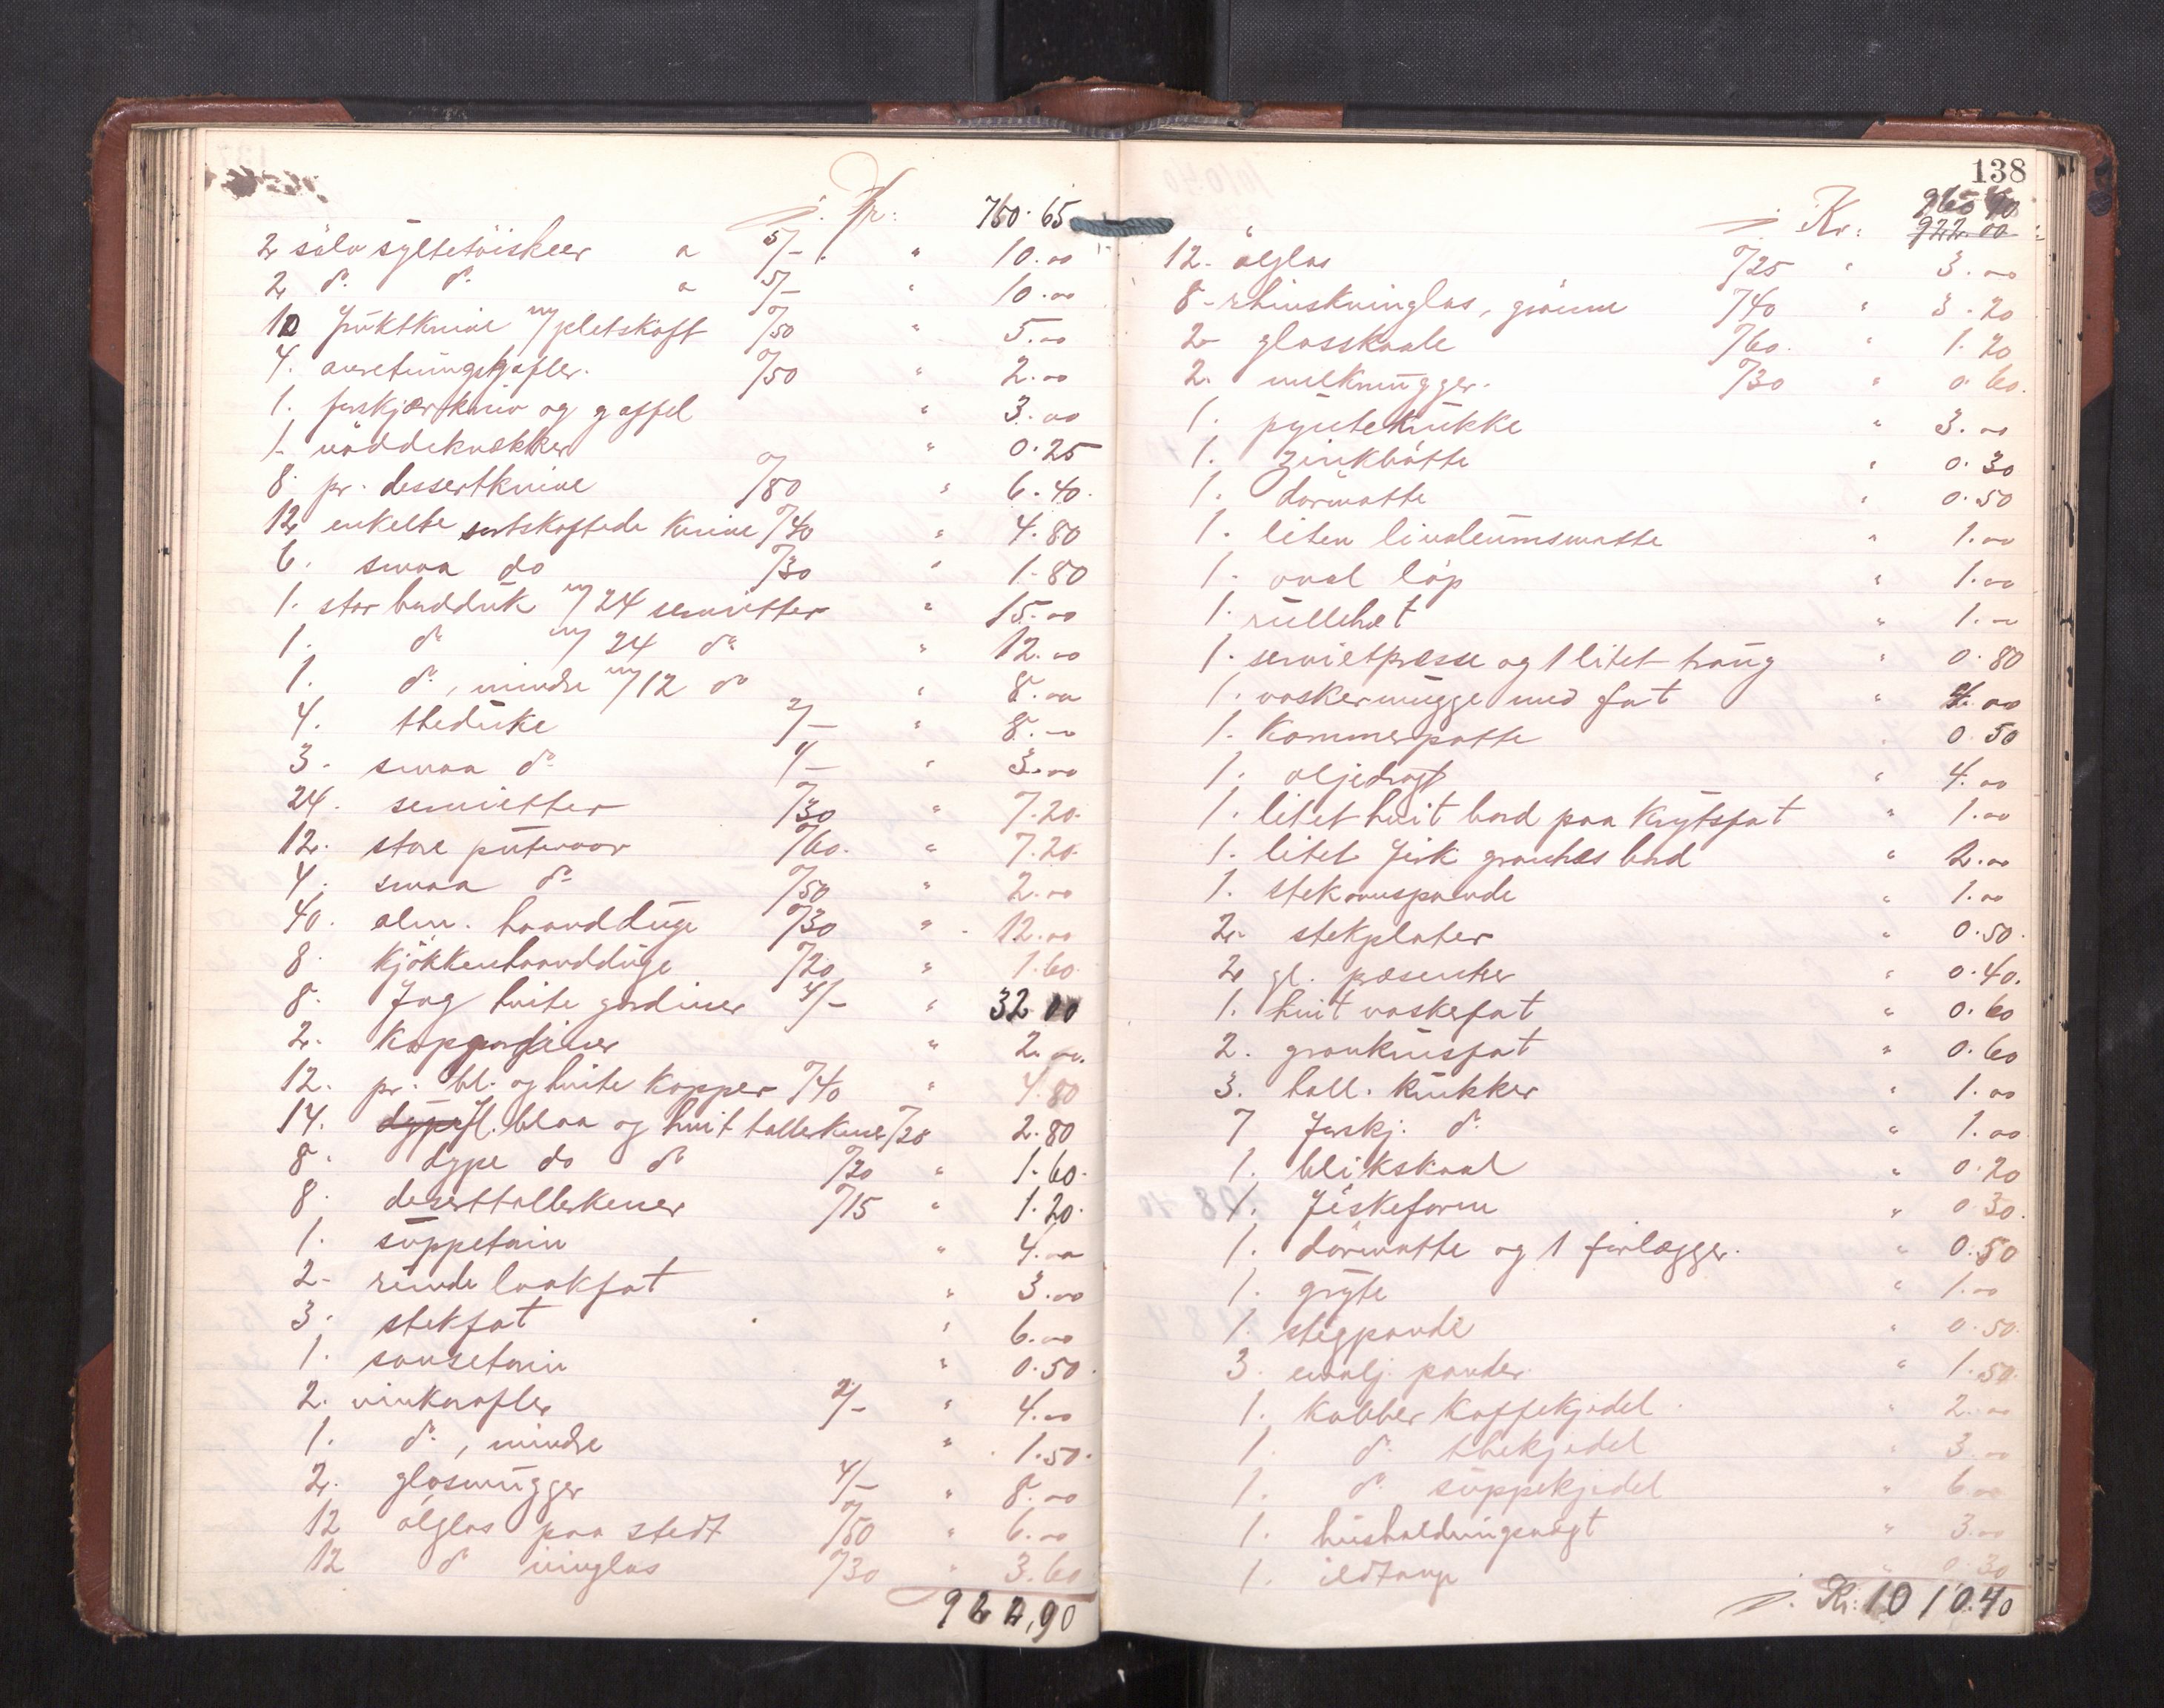 Kr: 760.65
2 sölv syltetöiskeer a 5/- " 10.00
2 do. do. a 5/- " 10.00
10 fruktknive m/ pletskaft /50 " 5.00
4. anretningsgafler. /50 " 2.00
1. forskjærkniv og gaffel " 3.00
1- nöddeknækker " 0.25
8. pr. dessertknive /80 " 6.40.
12 enkelte sortskaftede knive /40 " 4.80
6. smaa do /30 " 1.80
1. stor borddük m/ 24 servietter " 15.00
1. do m/ 24 do " 12.00
1. do, mindre m/ 12 do " 8.00
4. thedüke 2/- " 8.00
3. smaa do 1/- " 3.00
24. servietter /30 " 7.20.
12. store pütevaar /60. " 7.20
4. smaa do /50 " 2.00
40. alm. haanddüge /30 " 12.00
8. kjökkenhaanddüge /20 " 1.60.
8. fag hvite gardiner 4/- " 32 00
2. kapgardiner " 2.00.
12. pr. bl. og hvite kopper /40 " 4.80
14. dype fl. blaa og hvit tallerkener /20 2.80
8. dype do do /20 " 1.60.
8. deserttallerkener /15 " 1.20.
1. süppeterin " 4.00
2- runde laakfat " 3.00
3. stekfat " 6.00
1. sauseterin " 0.50.
2. vinkarafler 2/- " 4.00
1. do, mindre " 1.50.
2. glasmügger 4/- " 8.00
12 ölglas paa stedt /50 " 6.00
12 do vinglas /30 " 3.60
922,90
138
960 90
Kr: 922.00
12- ölglas /25 " 3.00
8- rhinskvinglas, grönne /40 " 3.20
2- glasskaale /60. " 1.20
2. melkmügger. /30 " 0.60.
1. pyntekrükke " 3.00
1. zinkbötte " 0.30
1. dörmatte " 0.50
1. liten linoleümsmatte " 1.00
1. oval löp " 1.00
1. rüllebret " 1.00
1. servietpresse og 1 litet traüg " 0.80
1. vaskermügge med fat " 4.00
1. Kammerpotte 0.50
1. oljedragt " 4.00
1. litet hvit bord paa krydsfat " 1.00
1. litet firk. bord " 2.00
1. stekovnspande " 1.00
2. stekplater " 0.50.
2 gl. presenter " 0.40.
1. hvit vaskefat " 0.60
2. fat " 0.60
3. holl. krükker " 1.00
7 forskj. do " 1.00
1. blikskaal " 0.20
1. fiskeform " 0.30.
1. dörmatte og 1 forlægger. " 0.50
1. gryte " 1.00
1. stegpande " 0.50.
3. emalj. pander. " 1.50.
1. kobber kaffekjedel. " 2.00
1. do. thekjedel " 3.00
1. do. süppekjedel " 6.00
1. hüsholdningsvegt " 3.00
1. ildtang " 0.30
Kr: 1010.40